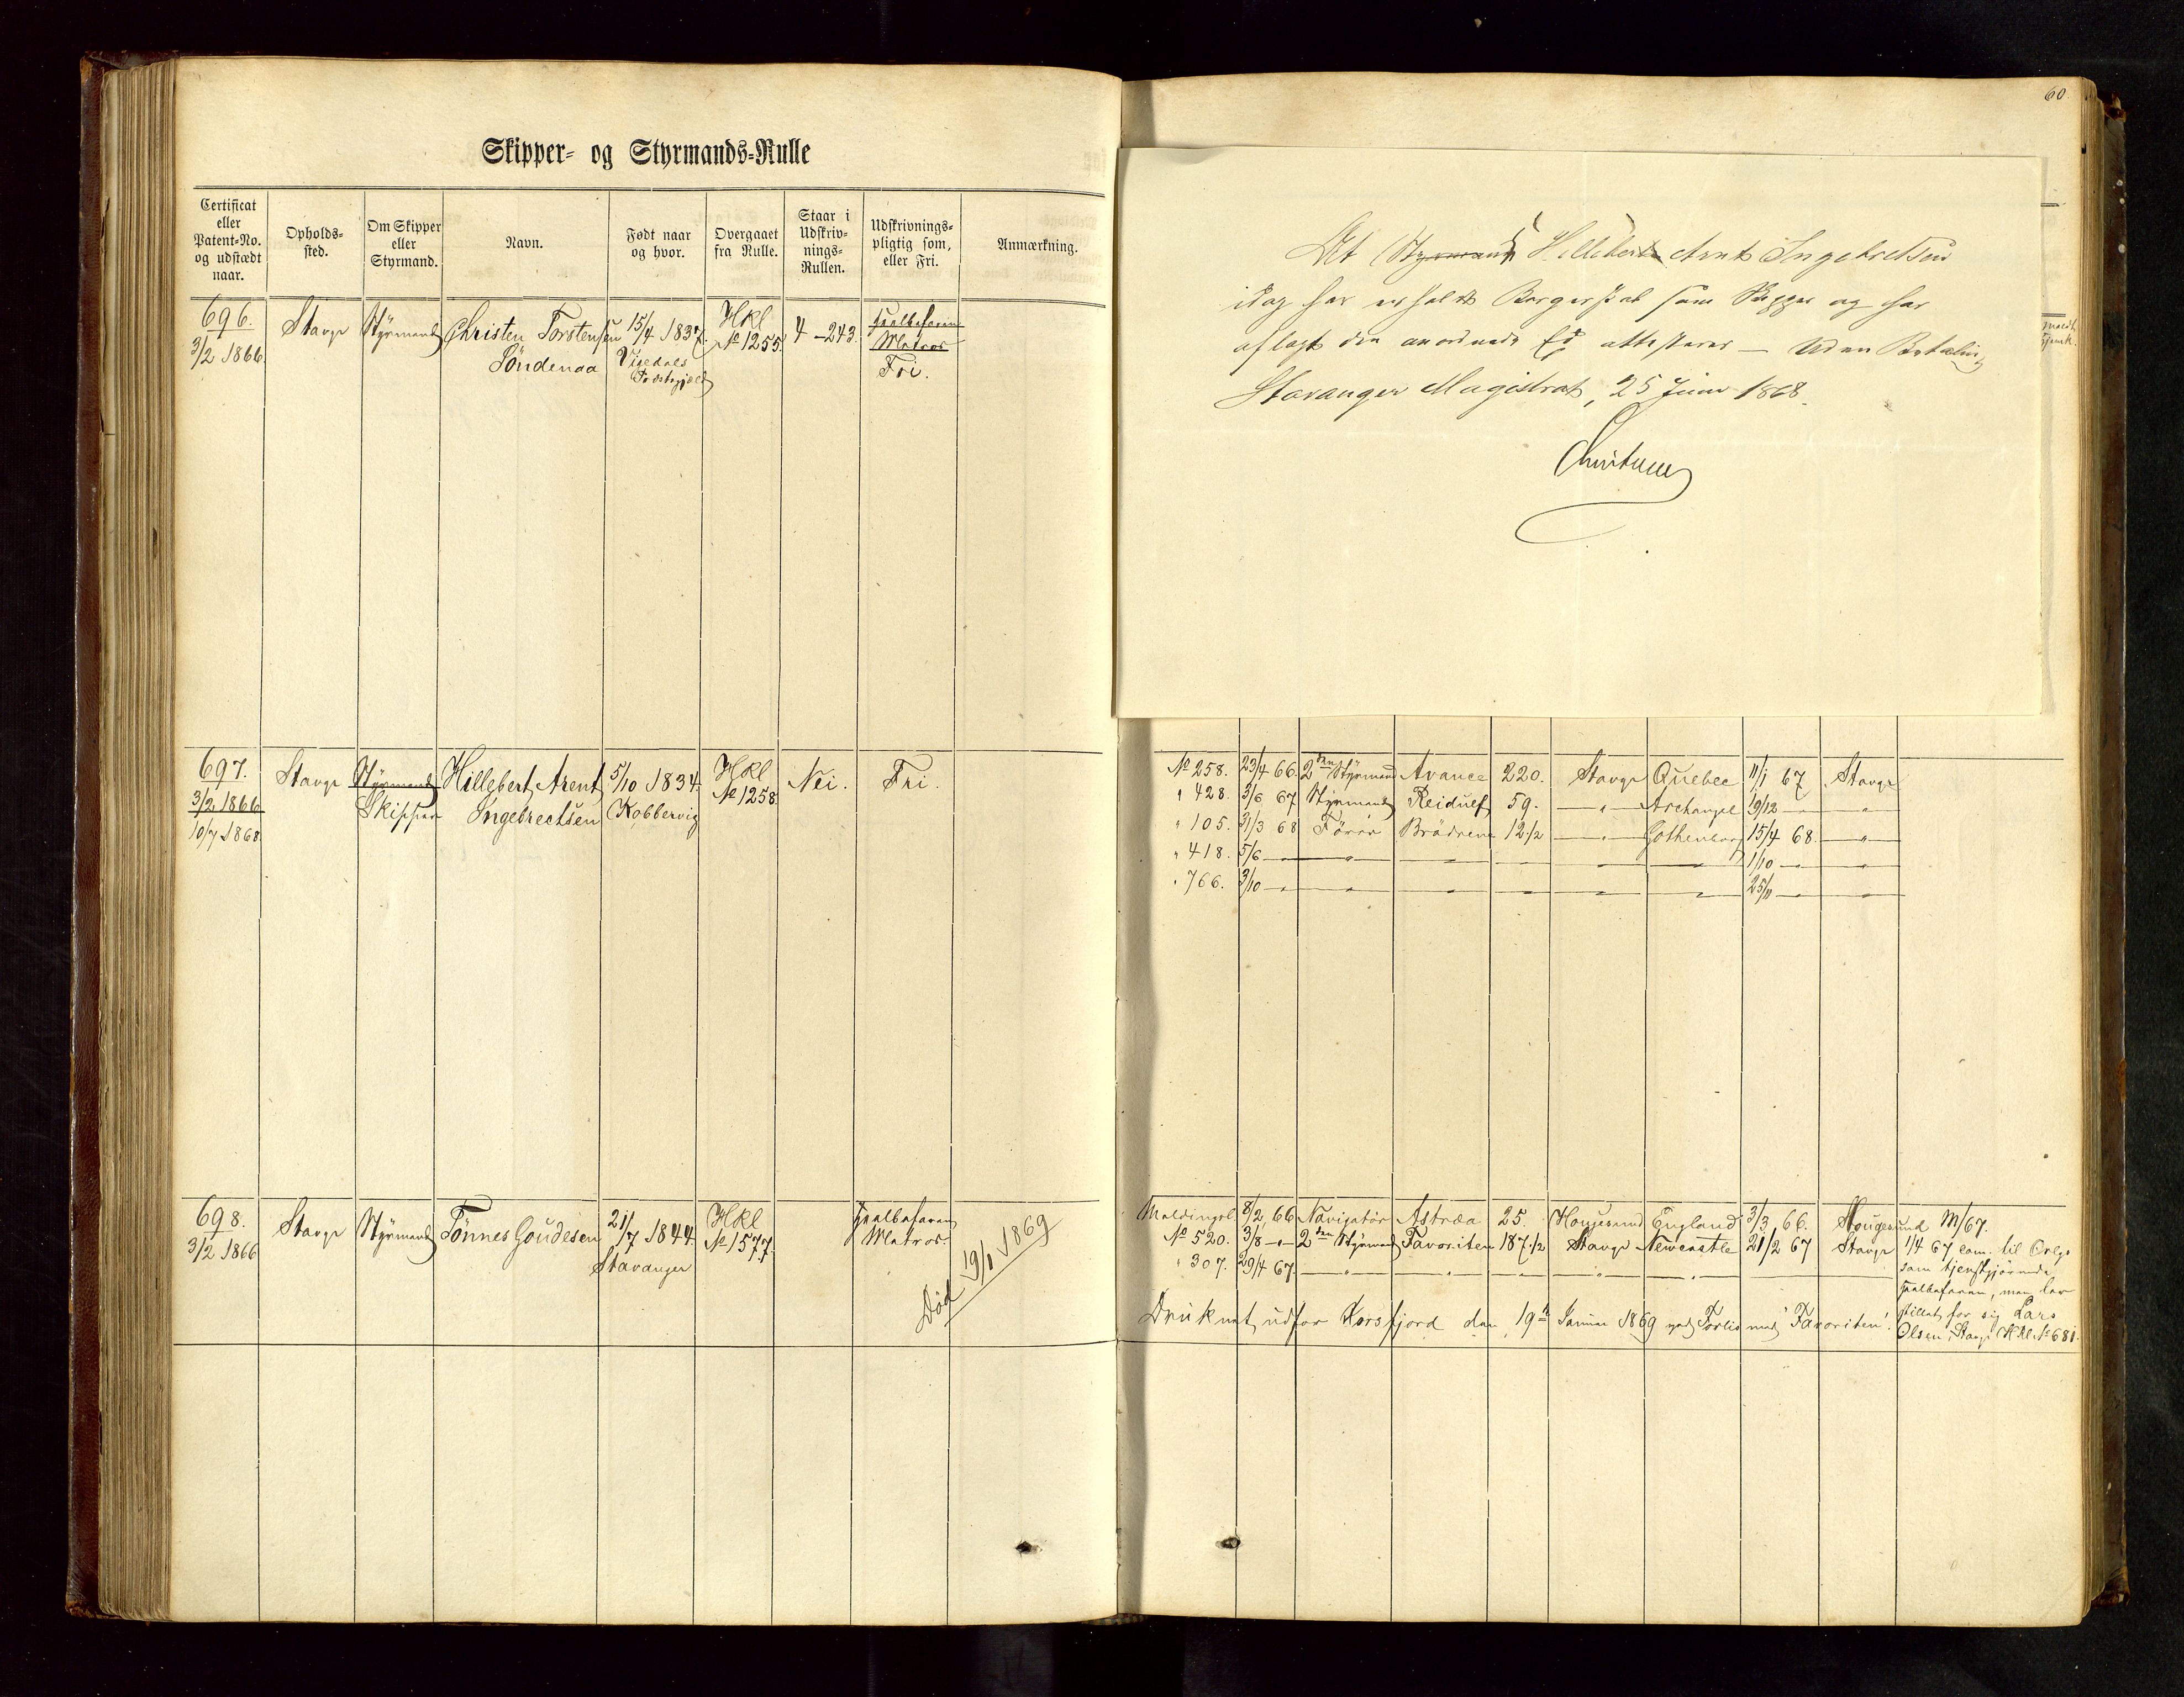 Skipper- og Styrmands-Rulle
Certificat eller Patent-No. og udstædt naar.
Opholds-sted.
Om Skipper eller Styrmand.
Navn.
Født naar og hvor.
Overgaaet fra Rulle.
Staar i Udskriv-nings-Rullen.
Udskrivnings-pligtig som, eller Fri.
Anmærkning.
696. Stavgr Styrmand Christen Torstensen 15/4 1837. Hkl 4 - 243. Halvbefaren
3/2 1866. Söndenaa Vigedals No 1255. Matros
Præstegjæld Fri.
697. Stavgr Styrmand Hillebert Arent 5/10 1834. Hkl Nei. Fri.
3/2 1866 Skipper Ingebrectsen Kobbervig No 1258
10/7 1868
698. Stavgr Styrmand Tönnes Goudesen 21/7 1844. Hkl
3/2 1866 Stavanger No 1577. Matros.
Død 19/1 1869
60.
At (Styrmand) Hillebert Arnt Ingebretsen
idag har erholdt Borgerskab som Skipper og har
aflagt den anordnede Ed attesteres — Uden Betaling
Stavanger Magistrat, 25 Juni 1868.
No 258. 23/4 66. 2den Styrmand Avance 220. Stavgr Quebec 11/1 67 Stavgr
" 428. 3/6 67 Styrmand Reidulf 59. — " — Archangel 19/12 — "
" 105. 31/3 68 Förer Brödrene 12 1/2 — " — Gothenborg 15/4 68. — " —
" 418. 5/6 — " — " — " — " — " — 1/10 — " — " —
" 766. 3/10 — " — " — " — " — " — 25/11 — " — " —
8/2 66 Navigatör Astræa 25. Hougesund England 3/3 66. Hougesund M/67.
No 520. 3/8 — " — 2den Styrmand Favoriten 187 1/2 Stavgr Newcastle 21/2 67 Stavgr 1/4 67 com. til Orlgs
" 307. 29/4 67. — " — " — " — " — " — som tjenstgjörende
Halvbefaren, men har
stillet for sig Lars
Olsen, Stavgr Hkl No 681.
Druknet udfor Korsfjord den 19de Januar 1869 ved Forlis med "Favoriten".